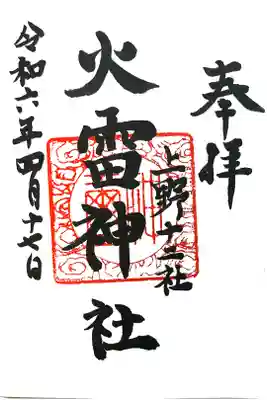 奉拝
上野十二社
火雷神社
令和六年四月十七日